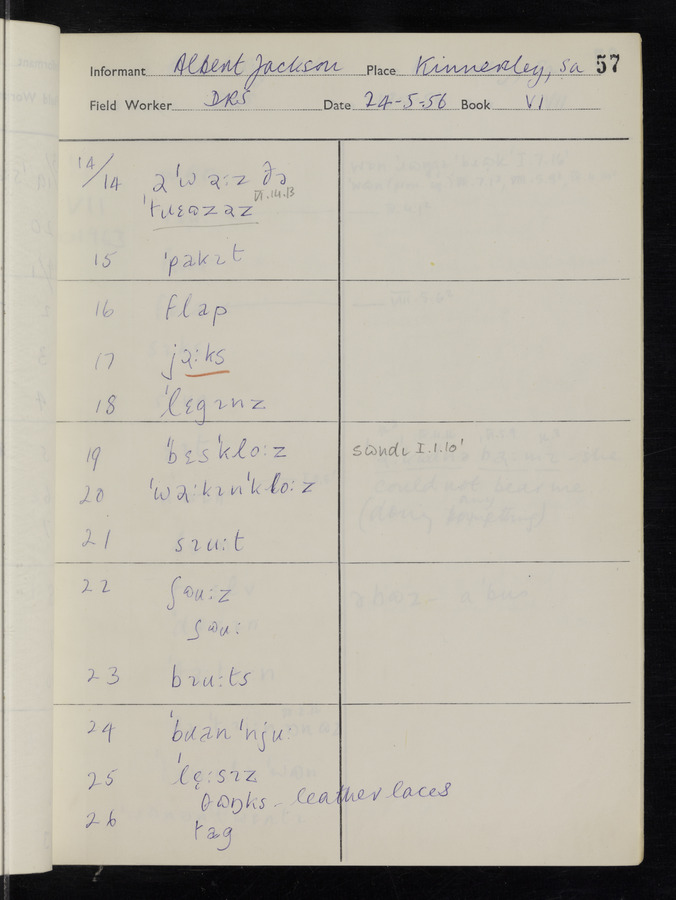 Informant Albert Jackson Place Kinnerley, Sa 57
Field Worker DRS Date 24-5-56 Book VI
14/14 əˈwəːz ðə
ˈtɹɛɷzəz VI.14.13
15 ˈpakɪt
16 flap
17 jəːks
18 ˈlɛgɪnz
19 ˈbɛsˈkloːz sɷndɩ I.1.10'
20 ˈwəːkɪnˈkloːz
21 sɪuːt
22 ʃɷuːz
ʃɷuː
23 bɪuːts
24 ˈbɹanˈnjuː
25 ˈlęːsɪz
θɷŋks - leather laces
26 tag